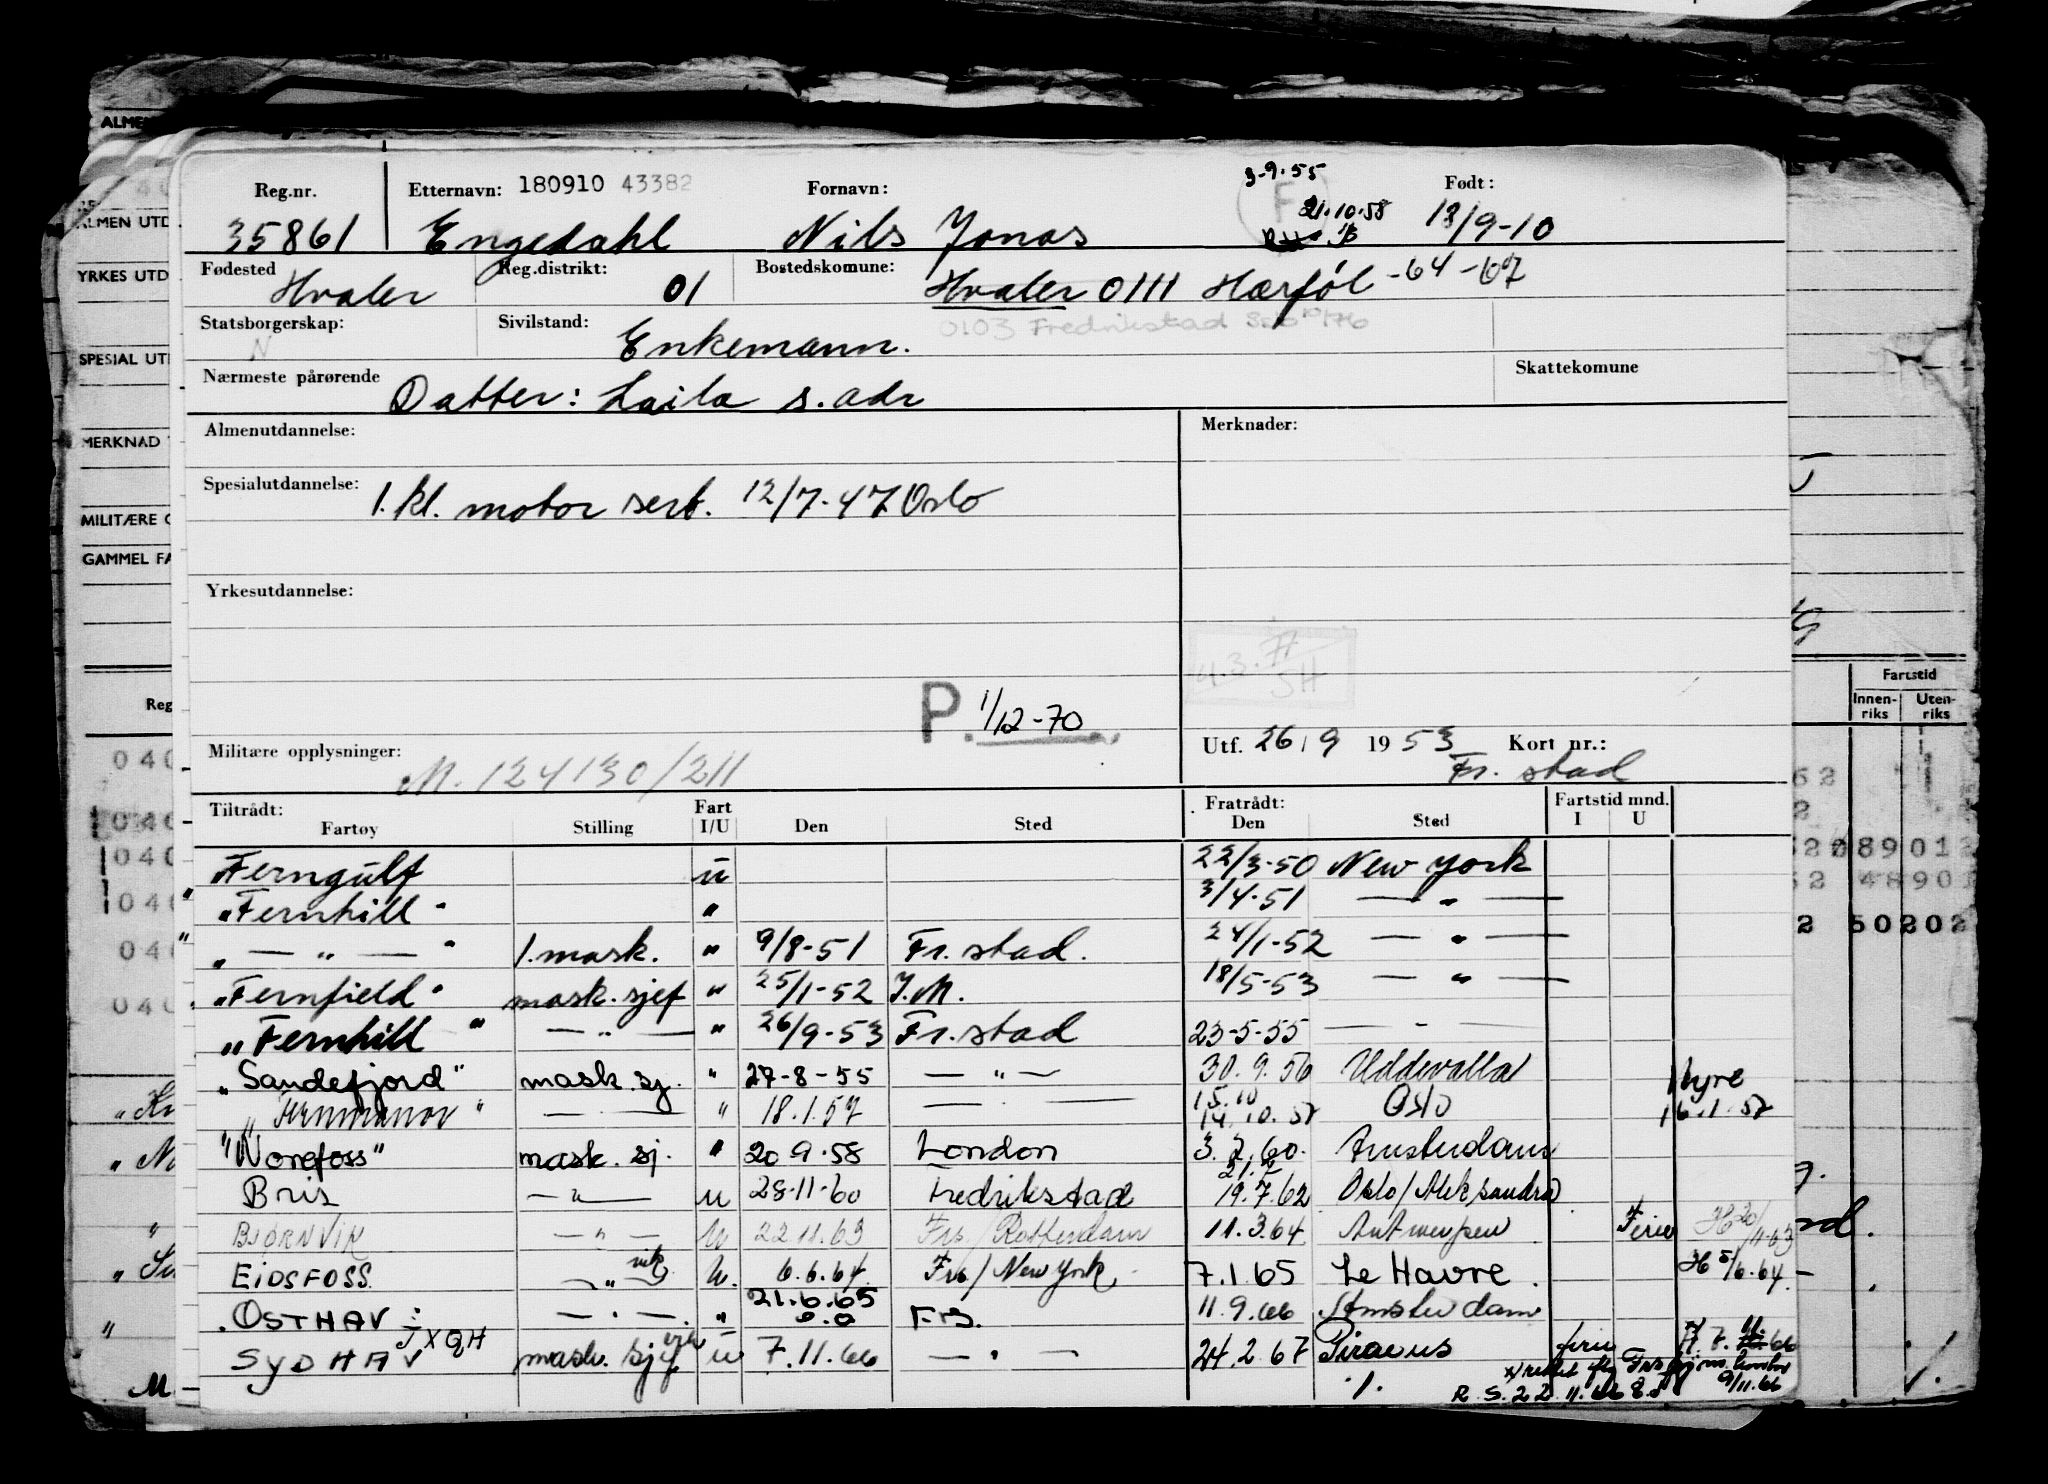 Reg.nr. Etternavn: 180910 43382 Fornavn: 3-9-55 Født:
35861 Engedahl Nils Jonas F 21.10.58 18/9-10
Fødested Reg.distrikt: Bostedskomune:
Hvaler 01 Hvaler 0111 Herføl -64-67
Statsborgerskap: Sivilstand: 0103 Fredrikstad
N Enkemann.
Nærmeste pårørende Skattekomune
Datter: Laila s. adr
Almenutdannelse: Merknader:
Spesialutdannelse: 1. kl. motor sert. 12/7-47 Oslo
Yrkesutdannelse:
P. 1/12-70
Militære opplysninger: Utf. 26/9 1953 Kort nr.:
M. 124130/211 Fr. stad
Tiltrådt: Fart Fratrådt: Fartstid mnd.
Fartøy Stilling I/U Den Sted Den Sted I U
Ferngulf u 22/3-50 New York
"Fernhill" " 3/4-51 — " —
" — " — " 1. mask. " 9/8-51 Fr. stad. 24/1-52 — " —
"Fernfield" mask. sjef " 25/1-52 J.M. 18/5-53 — " —
"Fernhill" — " — " 26/9-53 Fr. stad 23-5-55 — " —
"Sandefjord" mask. sj. " 27-8-55 — " — 30.9.56 Uddevalla Hyre
"Fernmanor" — " — " 18.1.57 — 15.10 14.10.57 Oslo 16.1.57
"Norefoss" mask. sj. " 20.9.58 London 3.2.60. Amsterdam
Bris — " — u 28-11-60 Fredrikstad 21.7 19.7.62 Oslo/Aleksandra
BJØRNVIK — " — U 22.11.63 Frs/Rotterdam 11.3.64 Antwerpen Ferie
EIDSFOSS — " — U. 6.6.64 Frs/New York 7.1.65 Le Havre. H 5/6.64
OSTHAV : — " — " 21.6.65 FrS. 11.9.66 Amsterdam
JXQH
SYDHAV mask. sjef u 7.11.66 — " — 24.2.67 Piraeus ferie
9/11.66
R.S. 22.11.66
ALMEN UTD
YRKES UTD
SPESIAL UT
MERKNAD
MILITÆRE O
GAMMEL FA
Reg
Fartstid
Innen-riks Uten-riks